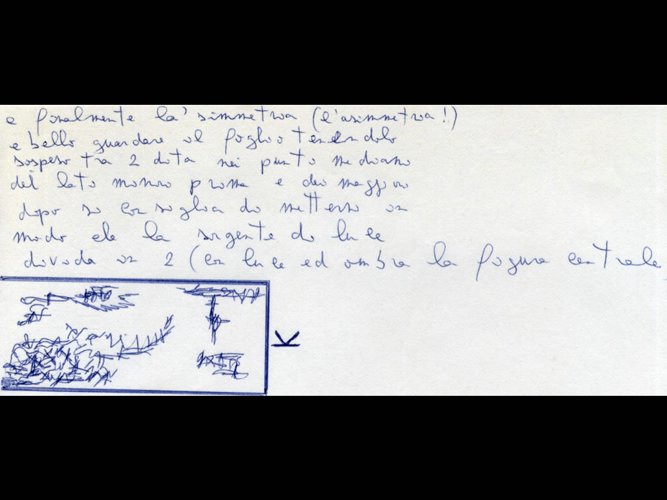 e finalmente la simmetria (l'asimmetria!)
e bello guardare il foglio tenendolo
sospeso tra 2 dita nei punto mediano
del lato minore prima e dei maggiori
dopo si consiglia di mettersi in
modo che la sorgente di luce
divida in 2 (con luce ed ombra la figura centrale
K